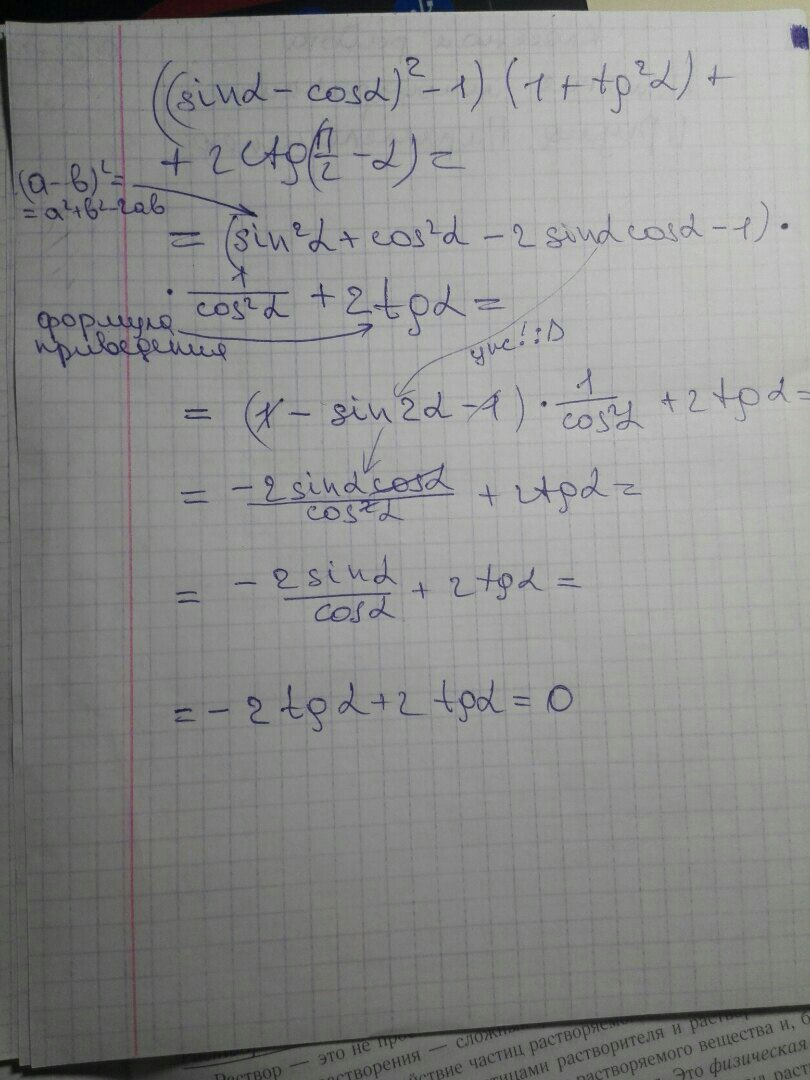 ((sinα − cosα)² − 1) (1 + tg²α) +
+ 2 ctg(π/2 − α) =
(a−b)² =
= a²+b²−2ab
= (sin²α + cos²α − 2 sinα cosα − 1) ·
· 1/cos²α + 2 tgα =
формула
приведения
упс! :D
= (1 − sin2α − 1) · 1/cos²α + 2 tgα =
= −2 sinα cosα / cos²α + 2 tgα =
= − 2 sinα / cosα + 2 tgα =
= − 2 tgα + 2 tgα = 0
Раствор — это не
растворения —
действие частиц
частицами растворителя и
растворяемого вещества и, б
Это физическая